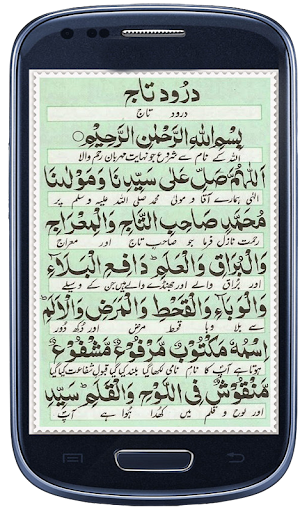 درود تاج
درود تاج
بِسْمِ اللهِ الرَّحْمٰنِ الرَّحِيْمِ
اللہ کے نام سے شروع جو نہایت مہربان رحم والا
اَللّٰهُمَّ صَلِّ عَلٰى سَيِّدِنَا وَمَوْلٰىنَا
الٰہی ہمارے آقا و مولیٰ محمد صلی اللہ علیہ وسلم پر
مُحَمَّدٍ صَاحِبِ التَّاجِ وَالْمِعْرَاجِ
رحمت نازل فرما جو صاحب تاج اور معراج
وَالْبُرَاقِ وَالْعَلَمِ ۞ دَافِعِ الْبَلَآءِ
اور براق والے اور جھنڈے والے ہیں جن کے وسیلے
وَالْوَبَآءِ وَالْقَحْطِ وَالْمَرَضِ وَالْاَلَمِ
سے بلا وبا قحط مرض اور دکھ دور
اِسْمُهٗ مَكْتُوْبٌ مَّرْفُوْعٌ مَّشْفُوْعٌ
ہوتا ہے آپ کا نام نامی لکھا گیا بلند کیا گیا قبول شفاعت کیا گیا
مَّنْقُوْشٌ فِى اللَّوْحِ وَالْقَلَمِ سَيِّدِ
اور لوح و قلم میں کھدا ہوا ہے آپ